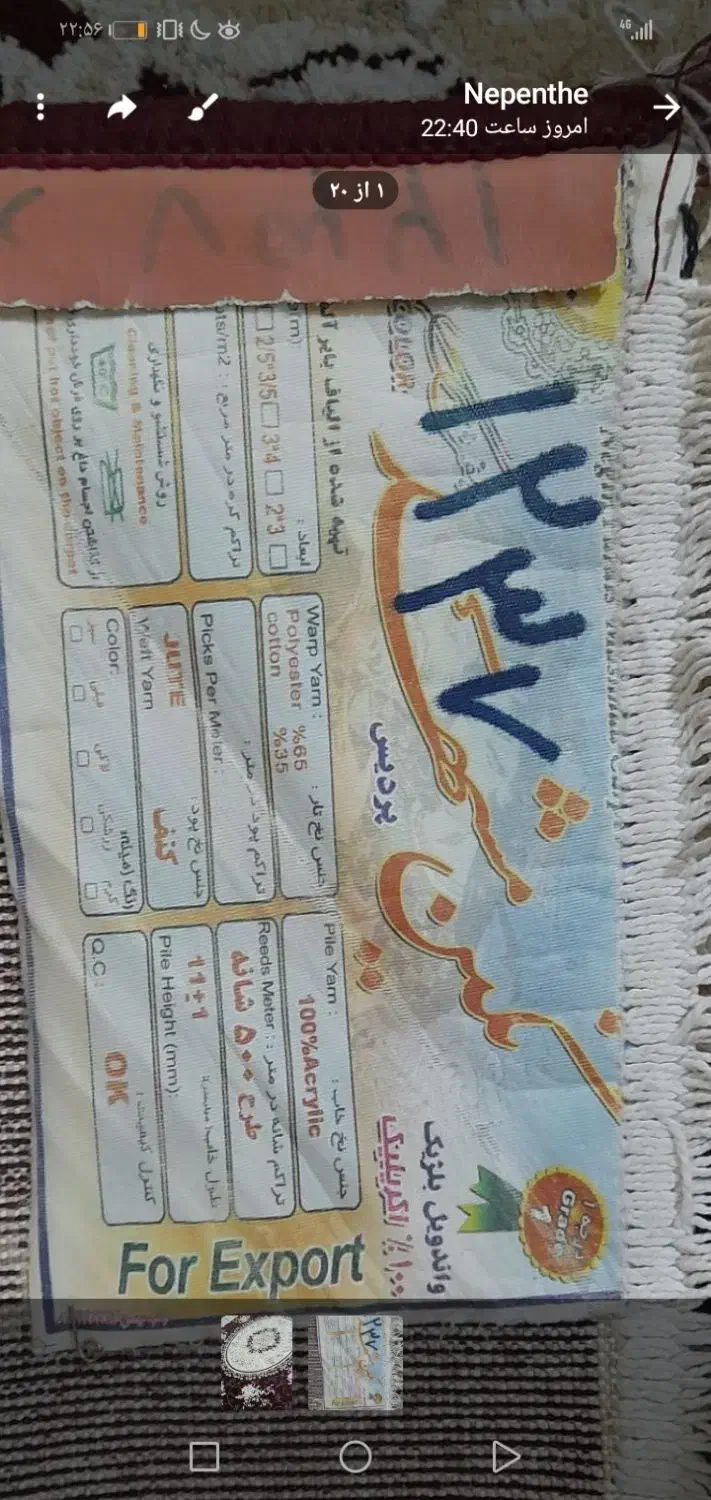 ۲۲:۵۶
4G
Nepenthe
امروز ساعت 22:40
۱ از ۲۰
۱۲۳۷
COLOR:
پردیس
تهیه شده از الیاف
ابعاد :
2*3
3*4
2.5*3/5
تراکم گره در متر مربع :
روش شستشو و نگهداری
Cleaning & Maintenance
not put hot object on the carpet
Warp Yarn :
جنس نخ تار :
Polyester %65
cotton %35
Picks Per Meter :
تراکم پود در متر :
JUTE
Weft Yarn
جنس نخ پود :
کنف
Color:
رنگ زمینه:
کرم
زرشکی
لاکی
Pile Yarn :
جنس نخ خاب :
100%Acrylic
Reeds Meter :
تراکم شانه در متر :
طرح ۵۰۰ شانه
11±1
Pile Height (mm):
Q.C :
کنترل کیفیت :
OK
واندویل بلژیک
۱۰۰٪ اکریلیک
Grade 1
For Export